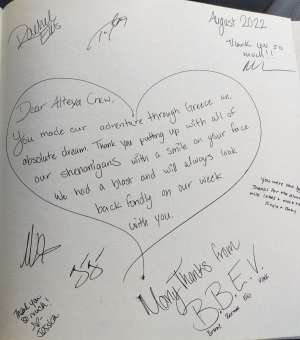 August 2022
Rachel
Thank you so
much!!
Dear Alteya Crew,
You made our adventure through Greece an
absolute dream. Thank you putting up with all of
our shenanigans with a smile on your face
We had a blast and will always look
back fondly on our week
with you.
You were the
Thanks for the
Many Thanks from
B.B.E.V.
Thank you
so much!
Jessica